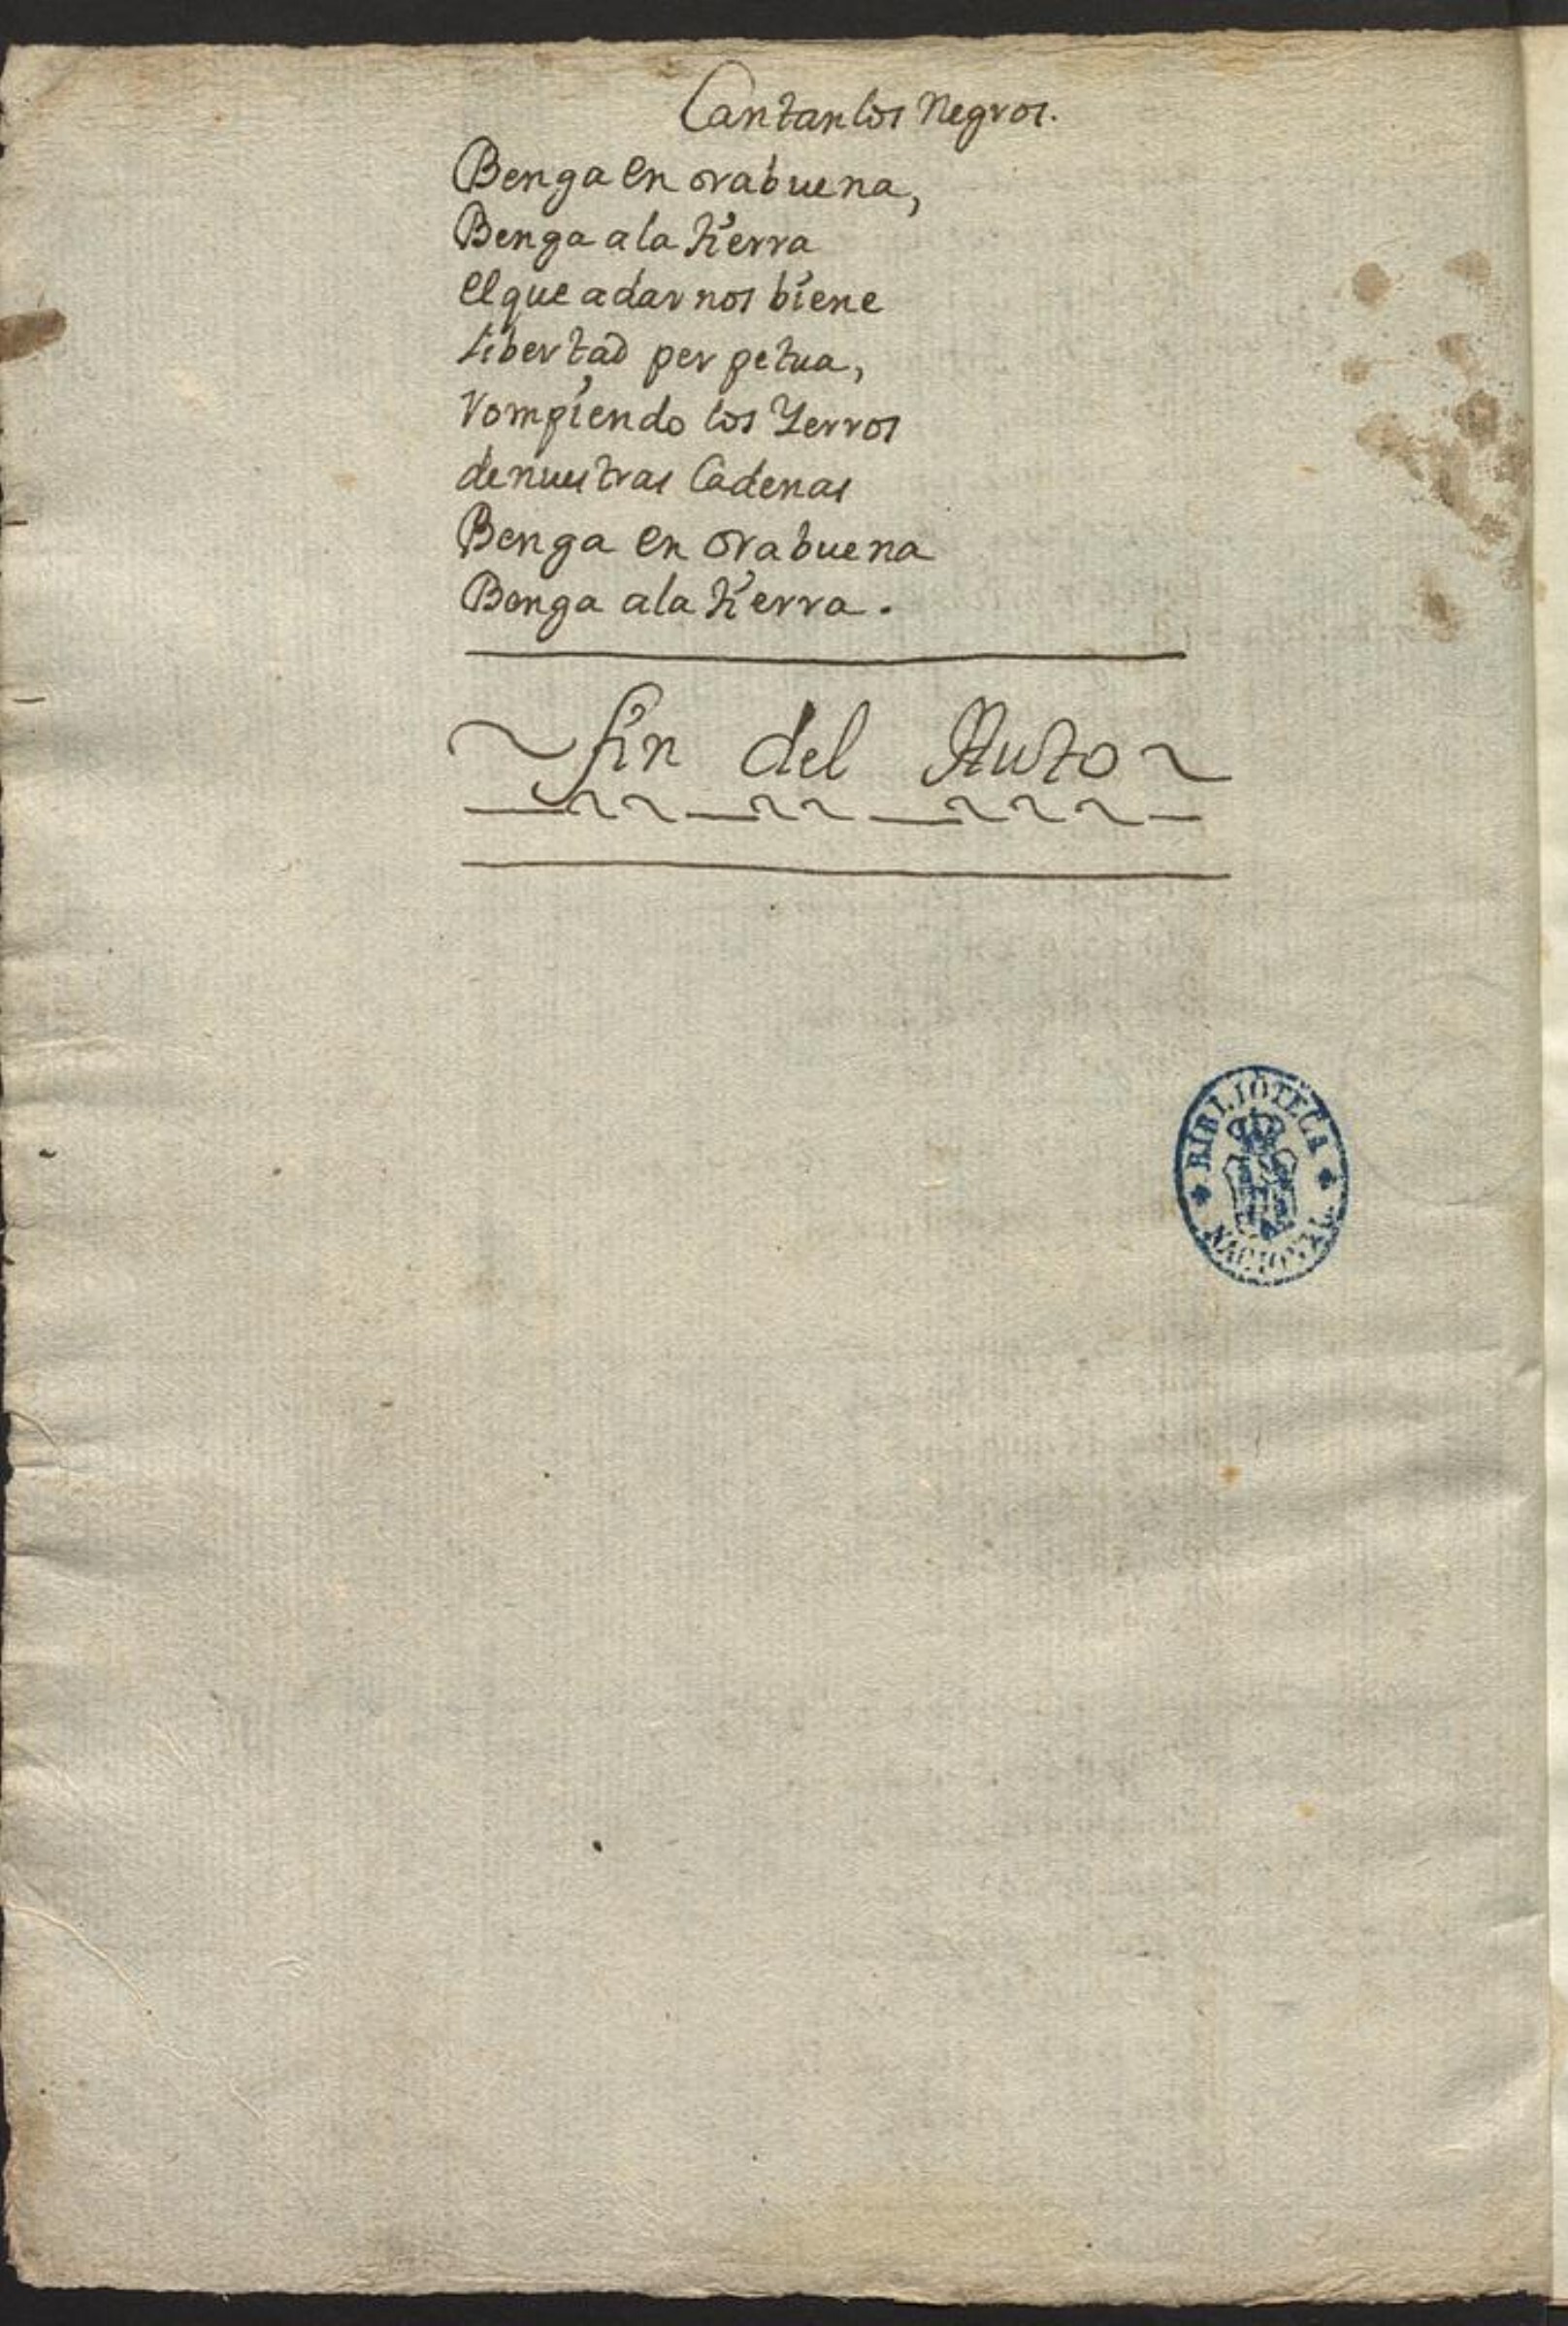 Cantan los Negros.
Benga en orabuena,
Benga a la tierra
el que a dar nos biene
libertad perpetua,
rompiendo los Yerros
de nuestras Cadenas
Benga en orabuena
Benga a la tierra.
fin del Auto
BIBLIOTECA
NACIONAL